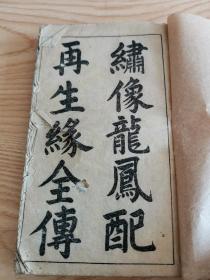 繡像龍鳳配
再生緣全傳